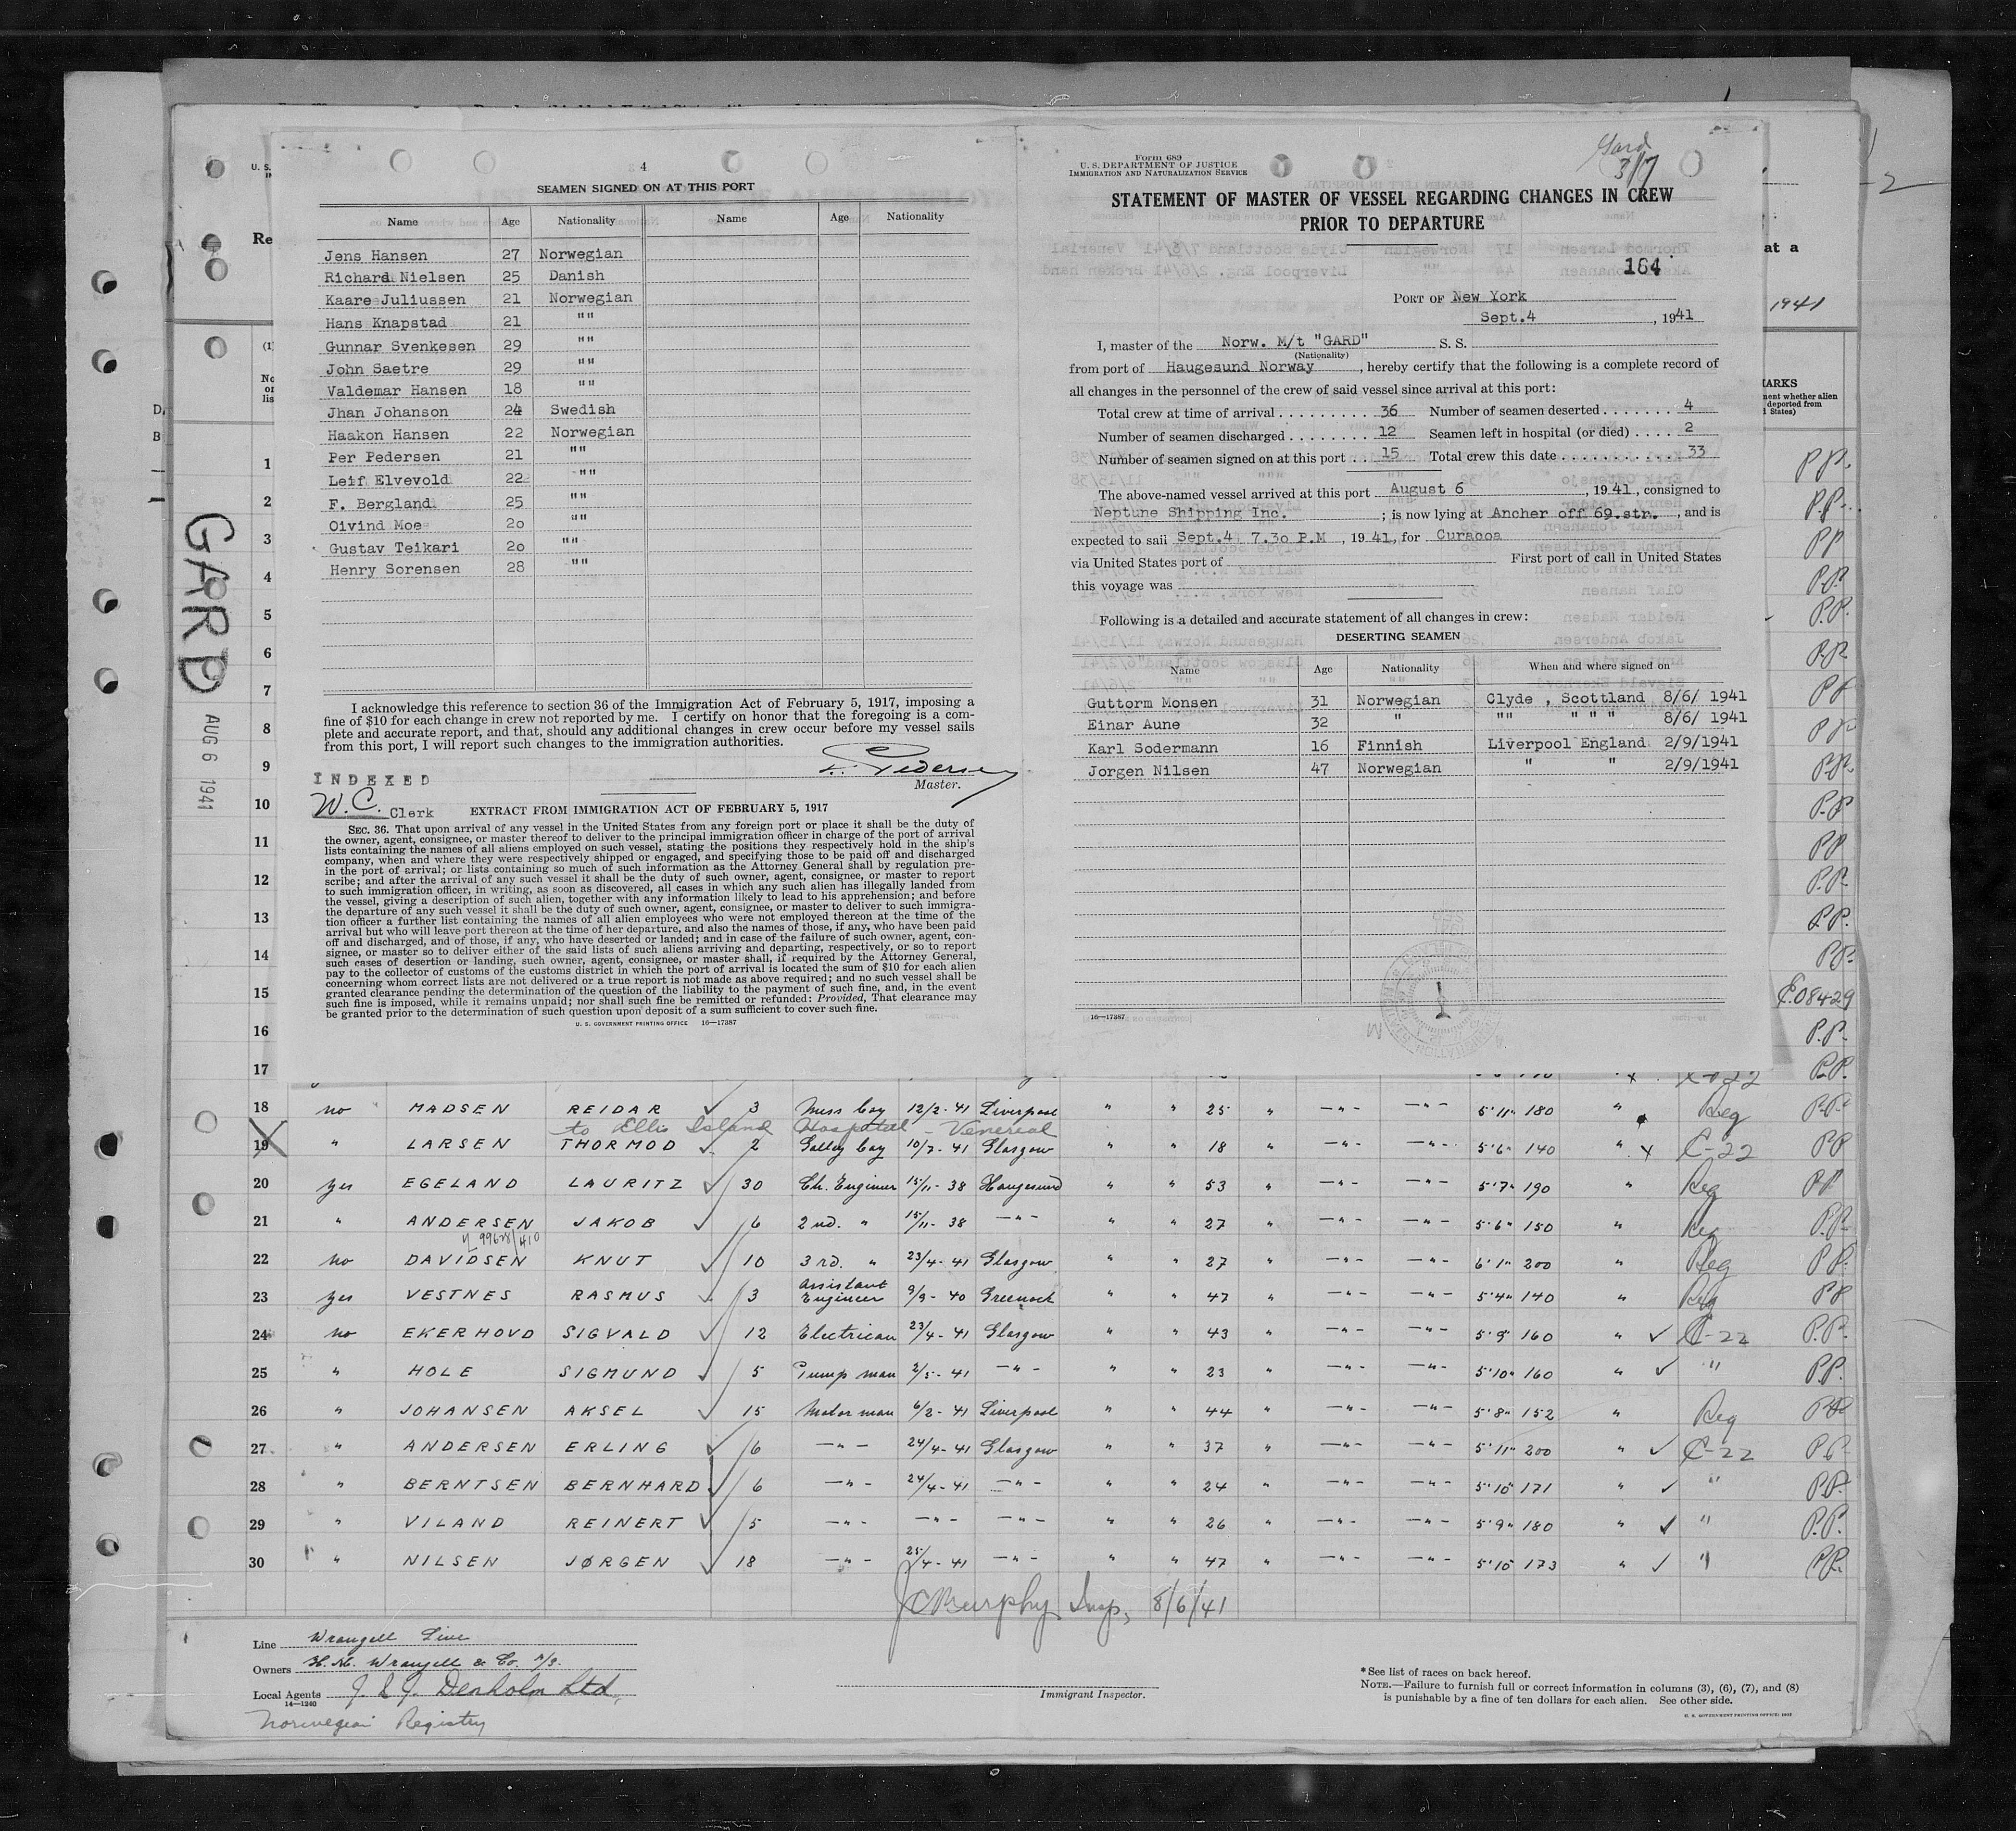 4
SEAMEN SIGNED ON AT THIS PORT
Name Age Nationality Name Age Nationality
Jens Hansen 27 Norwegian
Richard Nielsen 25 Danish
Kaare Juliussen 21 Norwegian
Hans Knapstad 21 ""
Gunnar Svenkesen 29 ""
John Saetre 29 ""
Valdemar Hansen 18 ""
Jhan Johanson 24 Swedish
Haakon Hansen 22 Norwegian
Per Pedersen 21 ""
Leif Elvevold 22 ""
F. Bergland 25 ""
Oivind Moe 2o ""
Gustav Teikari 2o ""
Henry Sorensen 28 ""
I acknowledge this reference to section 36 of the Immigration Act of February 5, 1917, imposing a
fine of $10 for each change in crew not reported by me. I certify on honor that the foregoing is a com-
plete and accurate report, and that, should any additional changes in crew occur before my vessel sails
from this port, I will report such changes to the immigration authorities.
Pedersen
Master.
INDEXED
W.C. Clerk
EXTRACT FROM IMMIGRATION ACT OF FEBRUARY 5, 1917
SEC. 36. That upon arrival of any vessel in the United States from any foreign port or place it shall be the duty of
the owner, agent, consignee, or master thereof to deliver to the principal immigration officer in charge of the port of arrival
lists containing the names of all aliens employed on such vessel, stating the positions they respectively hold in the ship's
company, when and where they were respectively shipped or engaged, and specifying those to be paid off and discharged
in the port of arrival; or lists containing so much of such information as the Attorney General shall by regulation pre-
scribe; and after the arrival of any such vessel it shall be the duty of such owner, agent, consignee, or master to report
to such immigration officer, in writing, as soon as discovered, all cases in which any such alien has illegally landed from
the vessel, giving a description of such alien, together with any information likely to lead to his apprehension; and before
the departure of any such vessel it shall be the duty of such owner, agent, consignee, or master to deliver to such immigra-
tion officer a further list containing the names of all alien employees who were not employed thereon at the time of the
arrival but who will leave port thereon at the time of her departure, and also the names of those, if any, who have been paid
off and discharged, and of those, if any, who have deserted or landed; and in case of the failure of such owner, agent, con-
signee, or master so to deliver either of the said lists of such aliens arriving and departing, respectively, or so to report
such cases of desertion or landing, such owner, agent, consignee, or master shall, if required by the Attorney General,
pay to the collector of customs of the customs district in which the port of arrival is located the sum of $10 for each alien
concerning whom correct lists are not delivered or a true report is not made as above required; and no such vessel shall be
granted clearance pending the determination of the question of the liability to the payment of such fine, and, in the event
such fine is imposed, while it remains unpaid; nor shall such fine be remitted or refunded: Provided, That clearance may
be granted prior to the determination of such question upon deposit of a sum sufficient to cover such fine.
U. S. GOVERNMENT PRINTING OFFICE 16—17387
Form 689
U. S. DEPARTMENT OF JUSTICE
IMMIGRATION AND NATURALIZATION SERVICE
Gard
3/7
STATEMENT OF MASTER OF VESSEL REGARDING CHANGES IN CREW
PRIOR TO DEPARTURE
164
PORT OF New York
Sept.4, 1941
I, master of the Norw. M/t "GARD" S. S.
(Nationality)
from port of Haugesund Norway, hereby certify that the following is a complete record of
all changes in the personnel of the crew of said vessel since arrival at this port:
Total crew at time of arrival 36 Number of seamen deserted 4
Number of seamen discharged 12 Seamen left in hospital (or died) 2
Number of seamen signed on at this port 15 Total crew this date 33
The above-named vessel arrived at this port August 6, 1941, consigned to
Neptune Shipping Inc. ; is now lying at Ancher off 69.str. , and is
expected to sail Sept.4 7.3o P.M, 1941, for Curacoa
via United States port of First port of call in United States
this voyage was
Following is a detailed and accurate statement of all changes in crew:
DESERTING SEAMEN
Name Age Nationality When and where signed on
Guttorm Monsen 31 Norwegian Clyde , Scottland 8/6/ 1941
Einar Aune 32 " "" " " " 8/6/ 1941
Karl Sodermann 16 Finnish Liverpool England 2/9/1941
Jorgen Nilsen 47 Norwegian " " 2/9/1941
16—17387
GARD
AUG 6 1941
U. S.
Re
at a
1941
1
2
3
4
5
6
7
8
9
10
11
12
13
14
15 C.08429
16
17
18 no MADSEN REIDAR 3 Mess boy 12/2-41 Liverpool " " 25 " —"- —"- 5'11" 180 " Reg P.P.
to Ellis Island Hospital - Venereal
19 " LARSEN THORMOD 2 Galley boy 10/7-41 Glasgow " " 18 " —"- —"- 5'6" 140 " x C-22 PP
20 yes EGELAND LAURITZ 30 Ch. Engineer 15/11-38 Haugesund " " 53 " —"- —"- 5'7" 190 " Reg PP
21 " ANDERSEN JAKOB 6 2nd. " 15/11-38 —"- " " 27 " —"- —"- 5'6" 150 " Reg P.P.
22 no DAVIDSEN KNUT 10 3rd. " 23/4-41 Glasgow " " 27 " —"- —"- 6'1" 200 " Reg P.P.
23 yes VESTNES RASMUS 3 Assistant Engineer 9/9-40 Greenock " " 47 " —"- —"- 5'4" 140 " Reg PP
24 no EKERHOVD SIGVALD 12 Electrican 23/4-41 Glasgow " " 43 " —"- —"- 5'9" 160 " C-22 P.P.
25 " HOLE SIGMUND 5 Pump man 2/5-41 —"- " " 23 " —"- —"- 5'10" 160 " " P.P.
26 " JOHANSEN AKSEL 15 Motor man 6/2-41 Liverpool " " 44 " —"- —"- 5'8" 152 " Reg PP
27 " ANDERSEN ERLING 6 —"- 24/4-41 Glasgow " " 37 " —"- —"- 5'11" 200 " C-22 P.P.
28 " BERNTSEN BERNHARD 6 —"- 24/4-41 —"- " " 24 " —"- —"- 5'10" 171 " " P.P.
29 " VILAND REINERT 5 —"- —"- —"- " " 26 " —"- —"- 5'9" 180 " " P.P.
30 " NILSEN JØRGEN 18 —"- 25/4-41 —"- " " 47 " —"- —"- 5'10" 173 " " P.P.
JC Murphy Insp, 8/6/41
Line Wrangell Line
Owners H. M. Wrangell & Co. A/S.
Local Agents J. & J. Denholm Ltd.
14—1240
Norwegian Registry
Immigrant Inspector.
*See list of races on back hereof.
NOTE.—Failure to furnish full or correct information in columns (3), (6), (7), and (8)
is punishable by a fine of ten dollars for each alien. See other side.